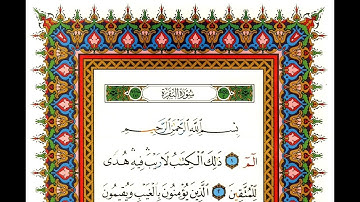 سُورَةُ الْبَقَرَةِ
بِسْمِ ٱللَّهِ ٱلرَّحْمَٰنِ ٱلرَّحِيمِ
الٓمٓ ۝١ ذَٰلِكَ ٱلْكِتَٰبُ لَا رَيْبَ ۛ فِيهِ ۛ هُدًى
لِّلْمُتَّقِينَ ۝٢ ٱلَّذِينَ يُؤْمِنُونَ بِٱلْغَيْبِ وَيُقِيمُونَ